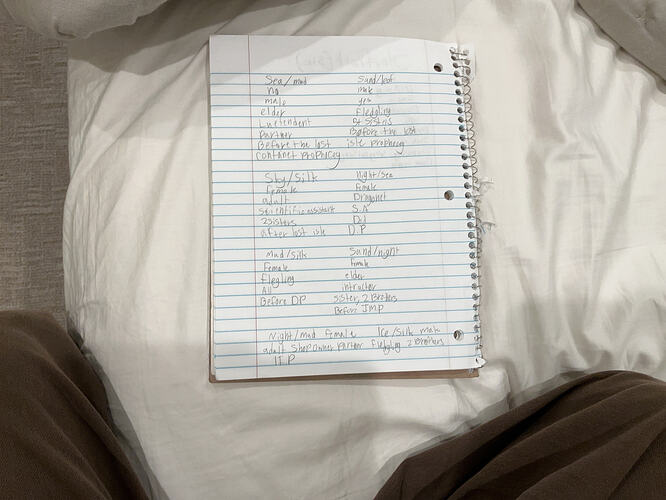 Sea/mud
no
male
elder
Luetendent
Partner
Before the lost
contanet prophecey
Sand/leaf
male
yes
Flegling
Bf sisters
Before the lost
isle prophecy
Sky/Silk
female
adult
scientific assistant
2 sisters
after lost isle
Night/sea
Female
Dragonet
S.A
Dad
D.P
Mud/silk
Female
Flegling
All
Before DP
Sand/night
Female
elder
intructer
sister, 2 Broters
Before JMP
Night/mud female
adult Shop owner Partner
II.P
Ice/Silk male
Flegling 2 Brothers